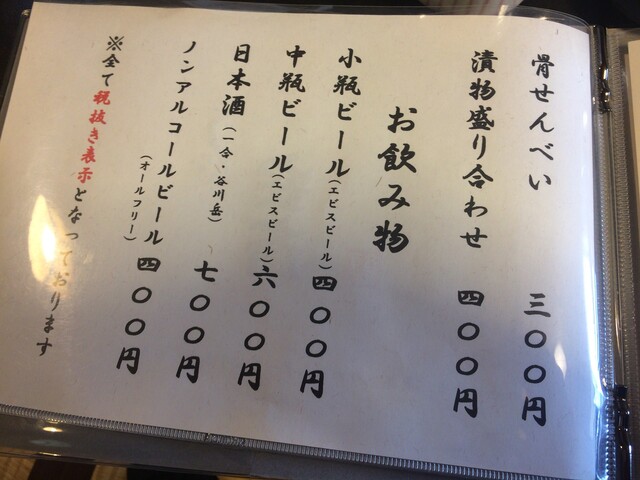 骨せんべい 三〇〇円
漬物盛り合わせ 四〇〇円
お飲み物
小瓶ビール(エビスビール) 四〇〇円
中瓶ビール(エビスビール) 六〇〇円
日本酒(一合・谷川岳) 七〇〇円
ノンアルコールビール(オールフリー) 四〇〇円
※全て税抜き表示となっております